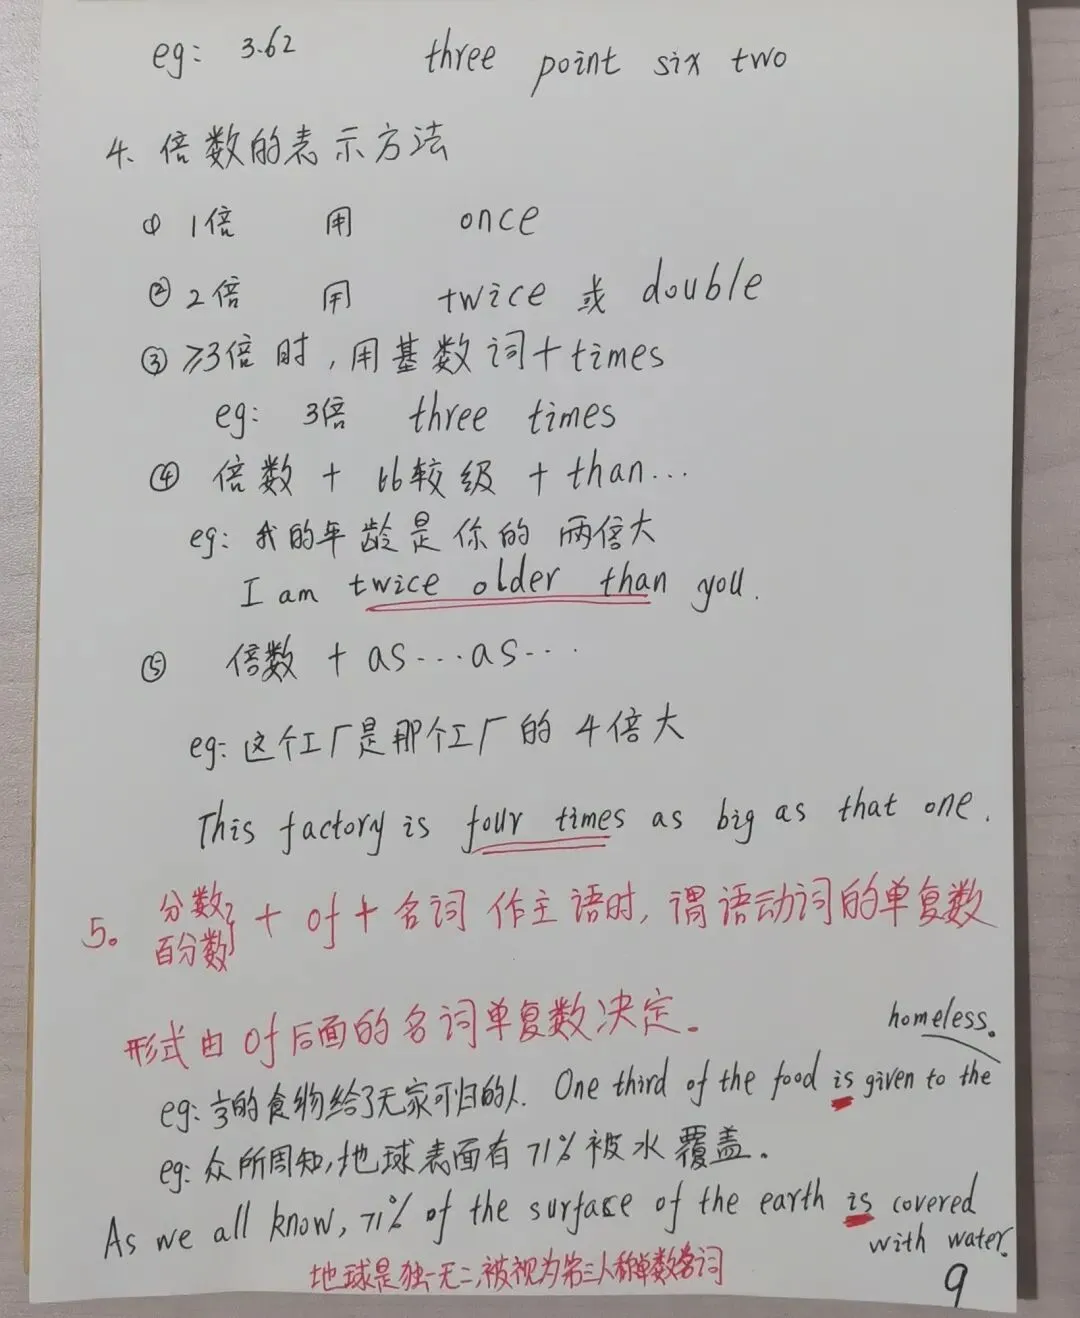 eg: 3.62 three point six two
4、倍数的表示方法
① 1倍 用 once
② 2倍 用 twice 或 double
③ ≥3倍时,用基数词+times
eg: 3倍 three times
④ 倍数 + 比较级 + than...
eg: 我的年龄是你的 两倍大
I am twice older than you.
⑤ 倍数 + as...as...
eg: 这个工厂是那个工厂的 4倍大
This factory is four times as big as that one.
5。 分数 百分数 } + of + 名词 作主语时,谓语动词的单复数
形式由of后面的名词单复数决定。
eg: ⅓的食物给了无家可归的人. One third of the food is given to the
homeless.
eg: 众所周知,地球表面有71%被水覆盖。
As we all know, 71% of the surface of the earth is covered
with water.
地球是独一无二,被视为第三人称单数名词
9